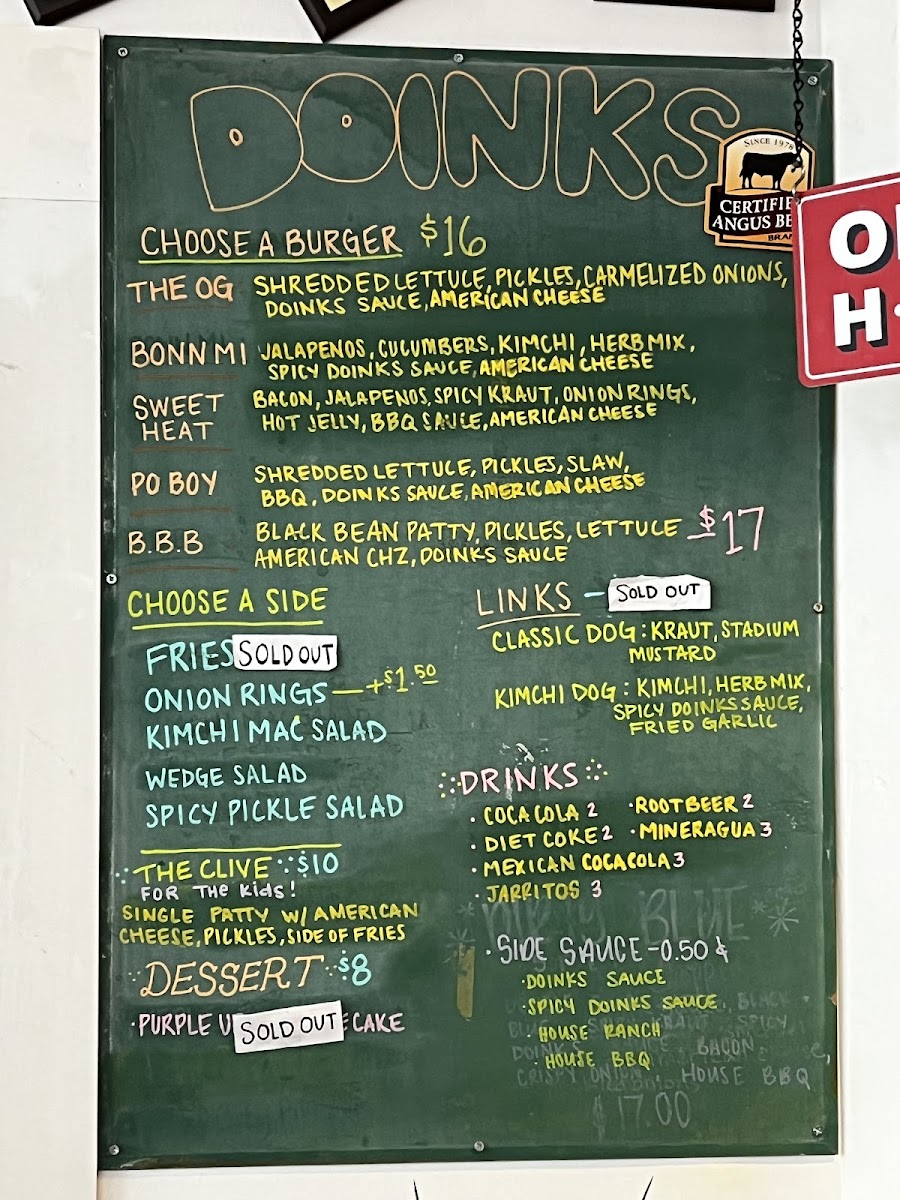 DOINKS
SINCE 1978
CERTIFIE
ANGUS BE
BRAN
O
H
CHOOSE A BURGER $16
THE OG SHREDDED LETTUCE, PICKLES, CARMELIZED ONIONS,
DOINKS SAUCE, AMERICAN CHEESE
BONN MI JALAPENOS, CUCUMBERS, KIMCHI, HERB MIX,
SPICY DOINKS SAUCE, AMERICAN CHEESE
SWEET HEAT BACON, JALAPENOS, SPICY KRAUT, ONION RINGS,
HOT JELLY, BBQ SAUCE, AMERICAN CHEESE
PO BOY SHREDDED LETTUCE, PICKLES, SLAW,
BBQ, DOINKS SAUCE, AMERICAN CHEESE
B.B.B BLACK BEAN PATTY, PICKLES, LETTUCE - $17
AMERICAN CHZ, DOINKS SAUCE
CHOOSE A SIDE
FRIES SOLD OUT
ONION RINGS — +$1.50
KIMCHI MAC SALAD
WEDGE SALAD
SPICY PICKLE SALAD
THE CLIVE $10
FOR THE KIDS!
SINGLE PATTY W/ AMERICAN
CHEESE, PICKLES, SIDE OF FRIES
DESSERT $8
PURPLE SOLD OUT CAKE
LINKS - SOLD OUT
CLASSIC DOG: KRAUT, STADIUM
MUSTARD
KIMCHI DOG: KIMCHI, HERB MIX,
SPICY DOINKS SAUCE,
FRIED GARLIC
DRINKS
• COCA COLA 2 • ROOTBEER 2
• DIET COKE 2 • MINERAGUA 3
• MEXICAN COCACOLA 3
• JARRITOS 3
BLUE
• SIDE SAUCE - 0.50¢
• DOINKS SAUCE
• SPICY DOINKS SAUCE
• HOUSE RANCH
• HOUSE BBQ
BLACK
SPICY
BACON,
CRISPY ONION, HOUSE BBQ
$17.00